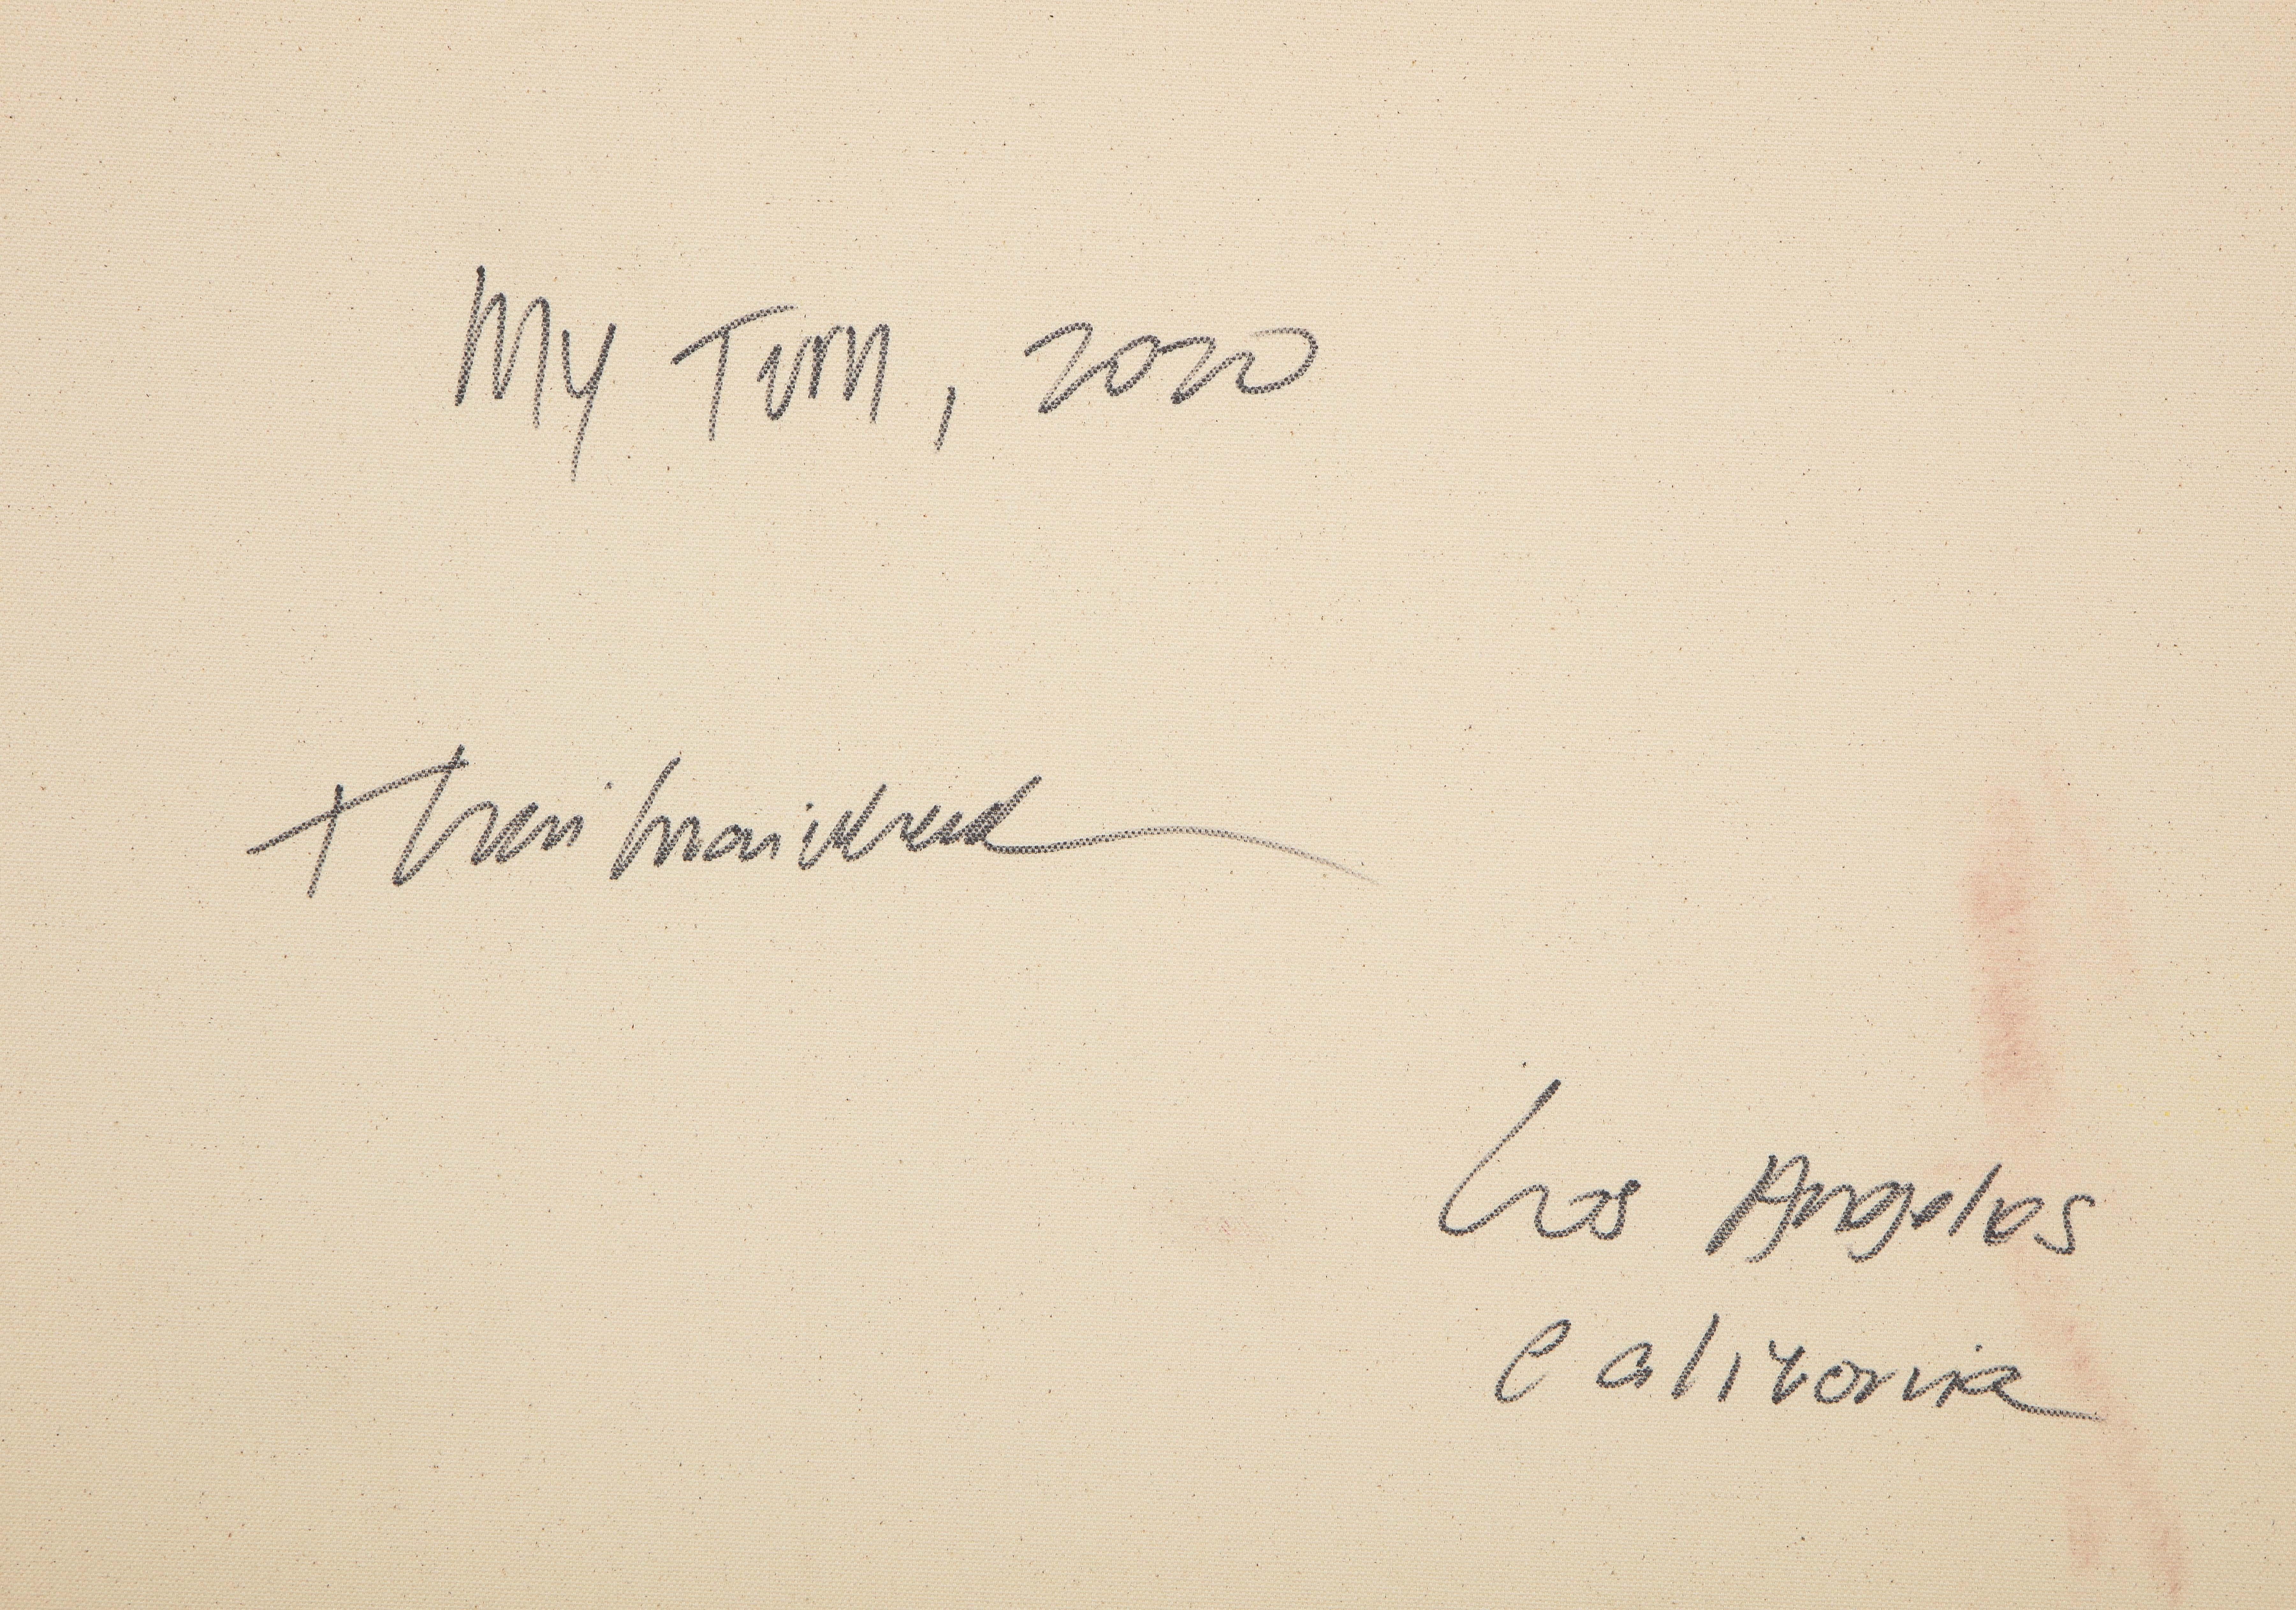 My Turn, 2020
Los Angeles
California